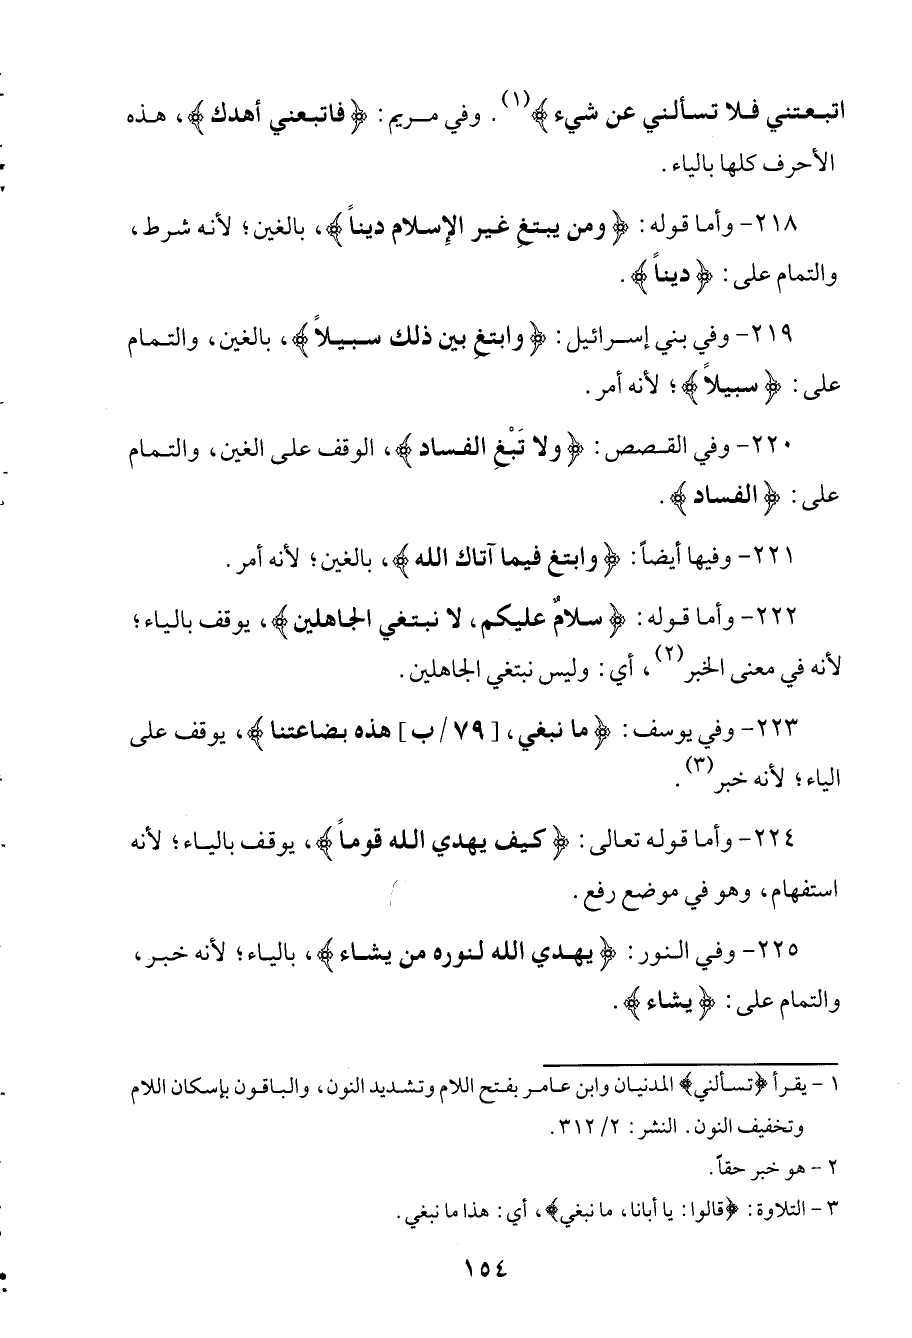 اتبعتني فلا تسألني عن شيء﴾(١). وفي مريم: ﴿فاتبعني أهدك﴾، هذه
الأحرف كلها بالياء.
٢١٨- وأما قوله: ﴿ومن يبتغِ غير الإسلام ديناً﴾، بالغين؛ لأنه شرط،
والتمام على: ﴿ديناً﴾.
٢١٩- وفي بني إسرائيل: ﴿وابتغِ بين ذلك سبيلاً﴾، بالغين، والتمام
على: ﴿سبيلاً﴾؛ لأنه أمر.
٢٢٠- وفي القصص: ﴿ولا تَبْغِ الفساد﴾، الوقف على الغين، والتمام
على: ﴿الفساد﴾.
٢٢١- وفيها أيضاً: ﴿وابتغ فيما آتاك الله﴾، بالغين؛ لأنه أمر.
٢٢٢- وأما قوله: ﴿سلامٌ عليكم، لا نبتغي الجاهلين﴾، يوقف بالياء؛
لأنه في معنى الخبر(٢)، أي: وليس نبتغي الجاهلين.
٢٢٣- وفي يوسف: ﴿ما نبغي، [٧٩/ب] هذه بضاعتنا﴾، يوقف على
الياء؛ لأنه خبر(٣).
٢٢٤- وأما قوله تعالى: ﴿كيف يهدي الله قوماً﴾، يوقف بالياء؛ لأنه
استفهام، وهو في موضع رفع.
٢٢٥- وفي النور: ﴿يهدي الله لنوره من يشاء﴾، بالياء؛ لأنه خبر،
والتمام على: ﴿يشاء﴾.
١ - يقرأ ﴿تسألني﴾ المدنيان وابن عامر بفتح اللام وتشديد النون، والباقون بإسكان اللام
وتخفيف النون. النشر: ٢/ ٣١٢.
٢ - هو خبر حقاً.
٣ - التلاوة: ﴿قالوا: يا أبانا، ما نبغي﴾، أي: هذا ما نبغي.
١٥٤